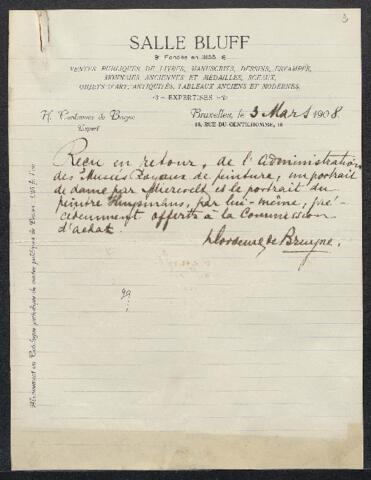 3
SALLE BLUFF
Fondée en 1855
VENTES PUBLIQUES DE LIVRES, MANUSCRITS, DESSINS, ESTAMPES,
MONNAIES ANCIENNES ET MÉDAILLES, SCEAUX,
OBJETS D'ART, ANTIQUITÉS, TABLEAUX ANCIENS ET MODERNES.
EXPERTISES
H. Cordemans de Bruyne
Expert
Bruxelles, le 3 Mars 1908.
10, RUE DU GENTILHOMME, 10
Reçu en retour, de l'administration
des Musées Royaux de peinture, un portrait
de dame par Mierevelt et le portrait du
peintre Huysmans, par lui-même, pré-
cédemment offerts à la Commission
d'achat.
de Bruyne.